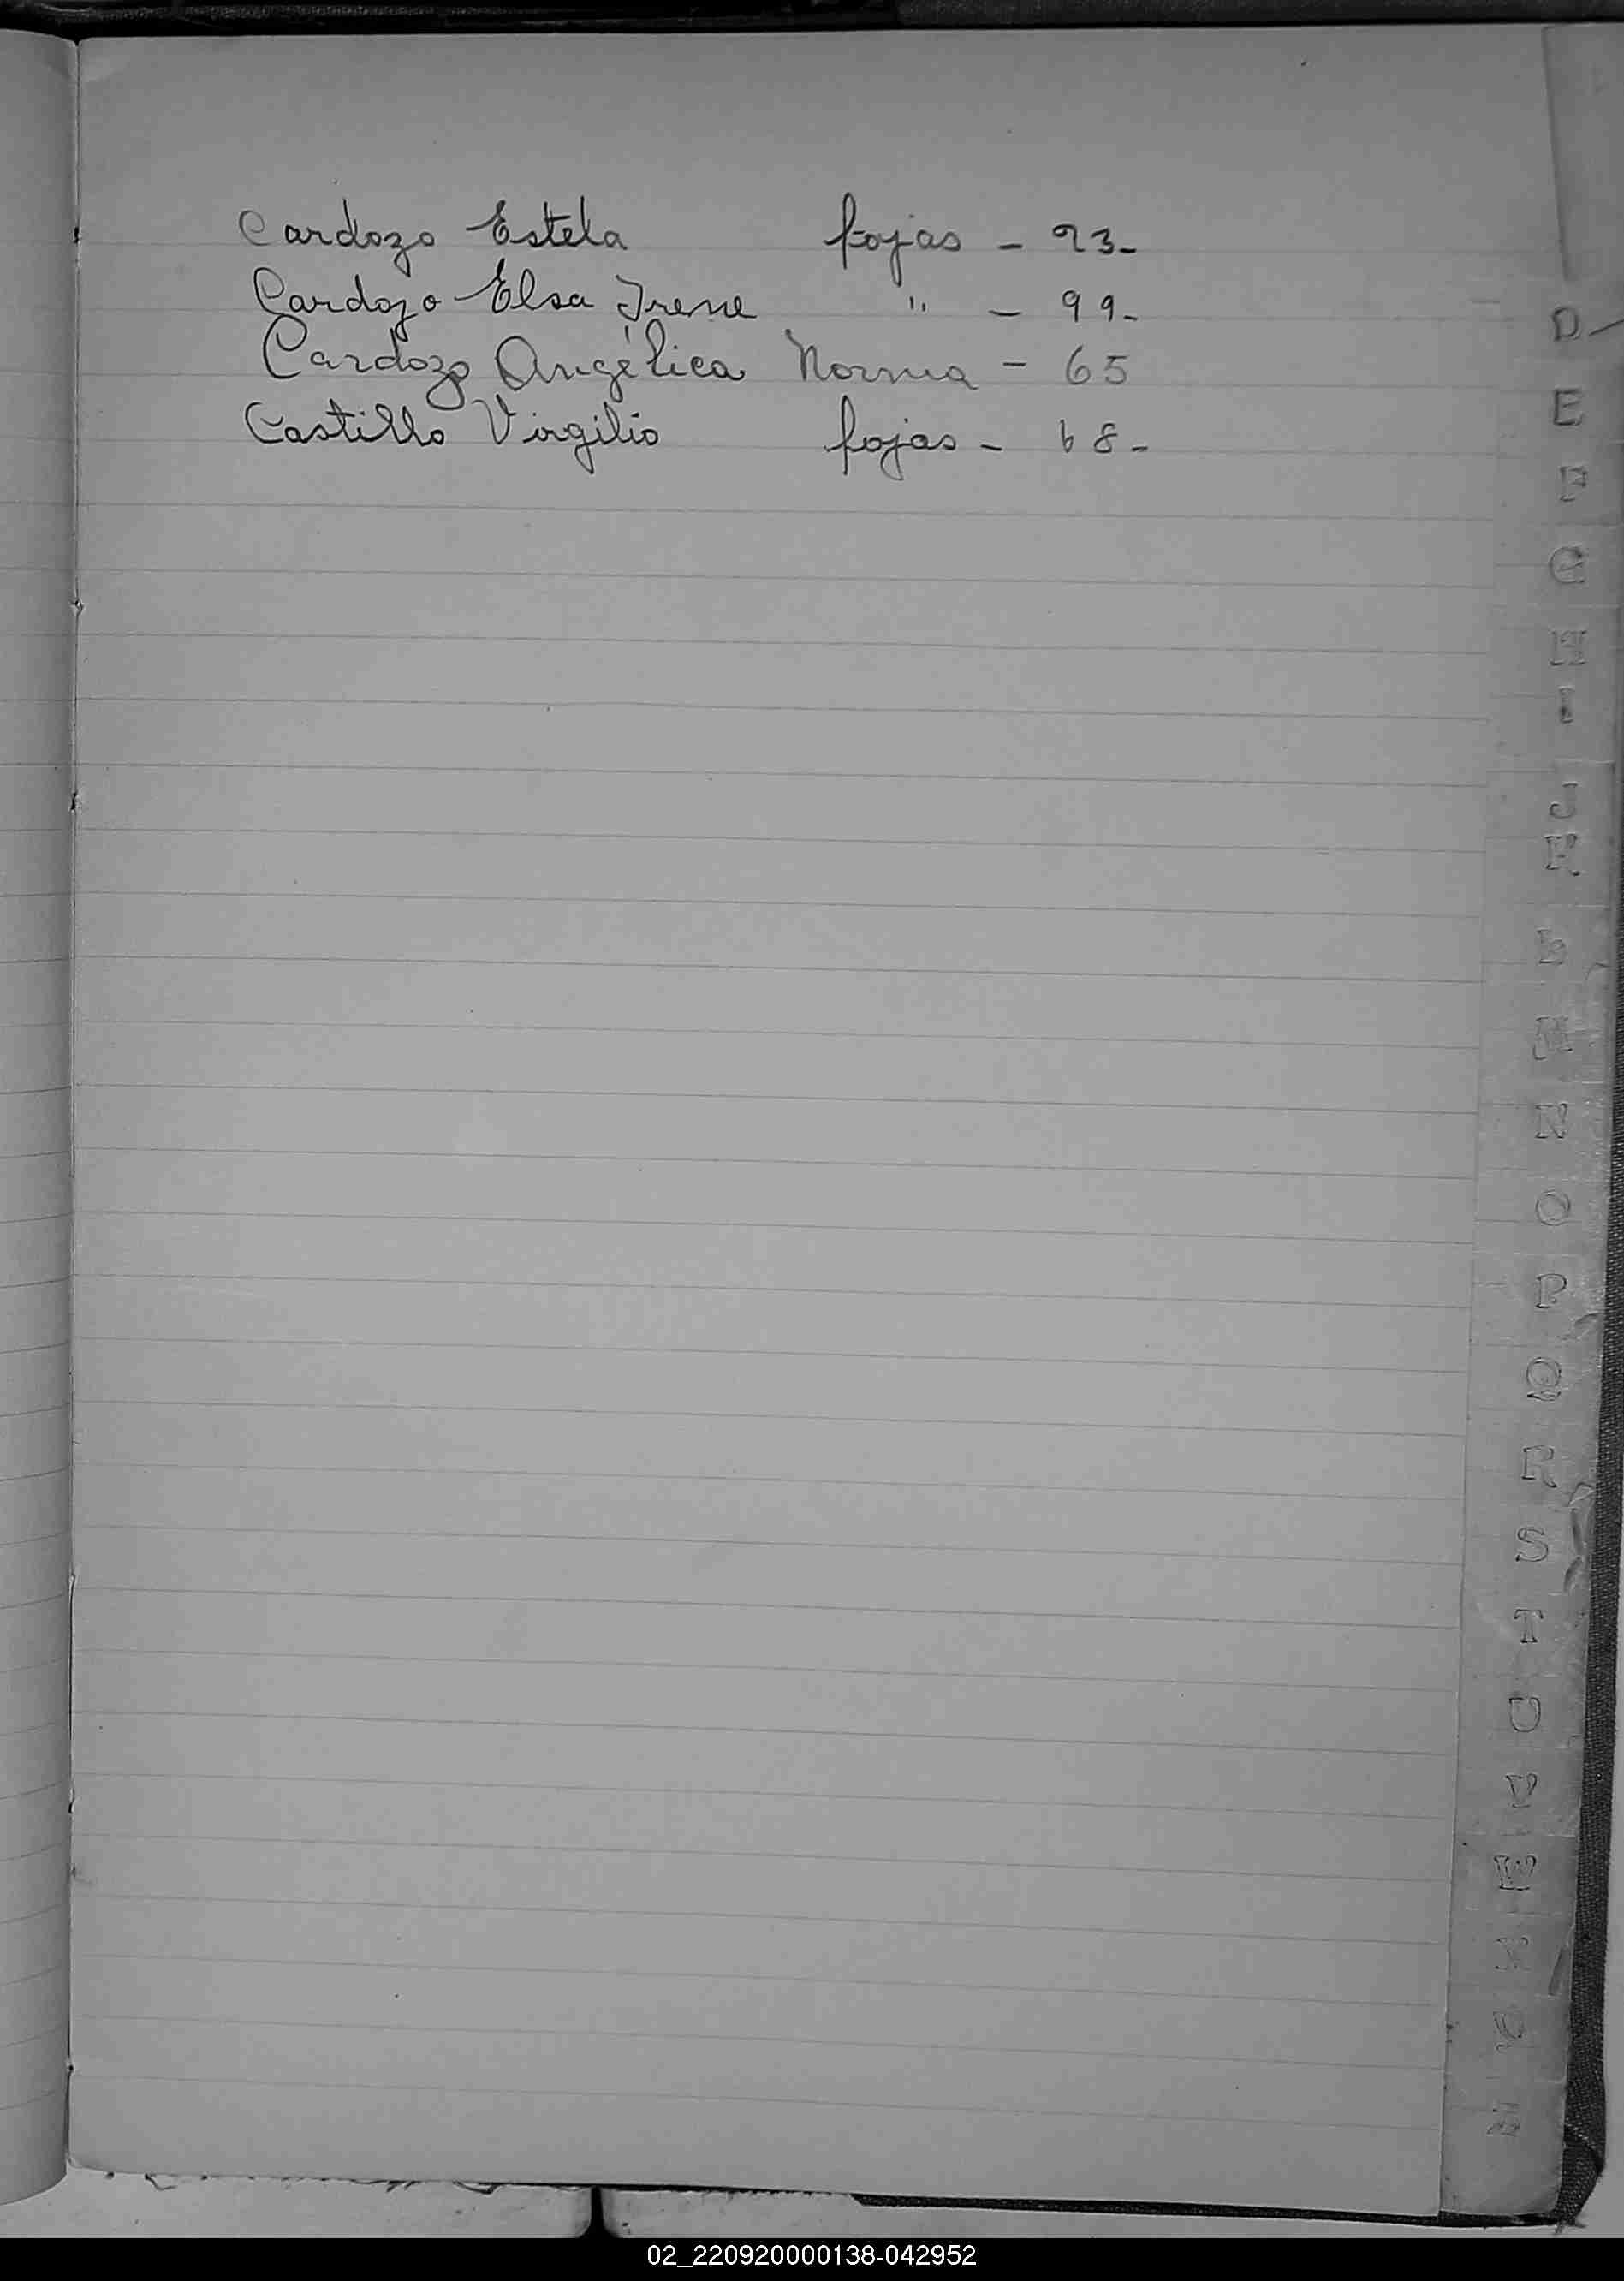 Cardozo Estela fojas - 93-
Cardozo Elsa Irene " - 99-
Cardozo Angélica Norma - 65
Castillo Virgilio fojas - 68-
D
E
F
G
H
I
J
K
L
M
N
O
P
Q
R
S
T
U
V
W
X
Y
Z
02_220920000138-042952